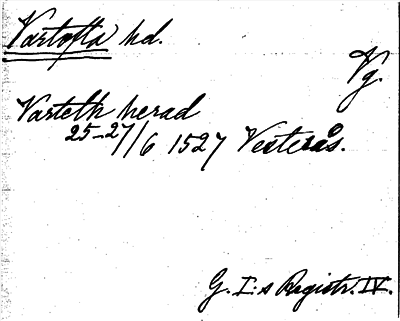 Vartofta hd.
Vg.
Varteth herad
25-27/6 1527 Vesterås.
G. I:s Registr. IV.